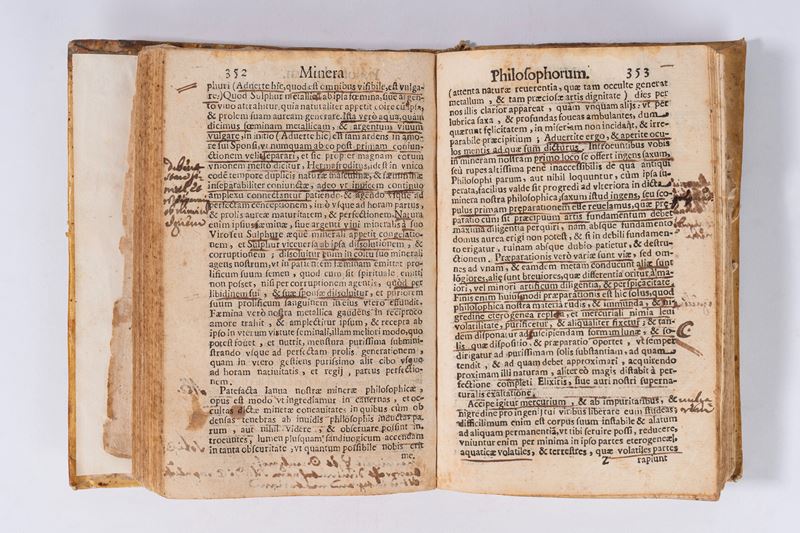 352 Minera
phuri (Aduerte hîc, quod est omnibus visibile, est vulga-
re) Quod Sulphur metallica ab ipsa fœmina, siue argen-
to viuo attrahitur, quia naturaliter appetit coire cū ipsis,
& prolem suam auream generare. Ista verò aqua, quam
dicimus fœminam metallicam, & argentum viuum
vulgare in initio (Aduerte hîc) est tam ardens in amo-
re sui Sponsi, vt numquam ab eo post primam coniun-
ctionem velit separari, et sic propter magnam eorum
vnionem meltò dicitur, Hermafroditus, idest in vnico
eodē tempore duplicis naturæ masculinæ, & fæmininæ
inseparabiliter coniunctæ, adeo vt in item continuo
amplexu connectantur patiendo & agedo vsque ad
perfectam conceptionem, in vsque ad horam partus,
& prolis aureæ maturitatem, & perfectionem. Natura
enim ipsius fæminæ, siue argenti viui mineralis à suo
Viro seu Sulphure æquè minerali appetit congelatio-
nem, et Sulphur viceuersa ab ipsa dissolutionem, &
corruptionem; dissoluitur enim in coitu suo mineralis
agens nostrum, vt in patientem fæminam emittat pro-
lificum suum semen, quod cum sit spirituale emitti
non posset, nisi per corruptionem agentis, quod per
libidinem sui, & suæ sponsæ dissoluitur, et puriorem
suum prolificum sanguinem in eius vtero effundit.
Fæmina verò nostra metallica gaudens in reciproco
amore trahit, & amplectitur ipsum, & recepta ab
ipso in vterum virtute seminali, illam meliori modo, quo
potest fouet, et nutrit, menstrua purissima submini-
strando vsque ad perfectam prolis generationem,
quam in vtero gestiens purissimo alit cibo vsque
ad horam natiuitatis, et regij, partus perfectio-
nem.
Patefacta Ianua nostræ mineræ philosophicæ,
opus est modo vt ingrediamur in cauernas, et oc-
cultas dictæ mineræ concauitates in quibus cùm ob
densas tenebras ab inuidis philosophis inductas pa-
rum, aut nihil videre, & obseruare possint in-
troeuntes, lumen plusquam sandiuogicum accendam
in tanta obscuritate, vt quantum possibile nobis erit
me,
Philosophorum. 353
(attenta naturæ reuerentia, quæ tam occultè generat
metallum, & tam præciosæ artis dignitate) dies per
nos illis clarior appareat, quàm vnquam alijs: vt per
lubrica saxa, & profundas foueas ambulantes, dum
quærunt felicitatem, in miseriam non incidant, & irre-
parabile præcipitium; Aduertite ergo, & aperite ocu-
los mentis ad quæ sum dicturus. Introeuntibus vobis
in mineram nostram primo loco se offert ingens saxum,
seu rupes altissima penè inaccessibilis de qua antiqui
Philosophi parum, aut nihil loquuntur, cùm ipsa su-
perata, facilius valde sit progredi ad vlteriora in dicta
minera nostra philosophica, saxum istud ingens, seu sco-
pulus primam præparationem esse reuelamus, quæ præ-
paratio cùm sit præcipuum artis fundamentum debet
maxima diligentia perquiri, nam absque fundamento
domus aurea erigi non potest, & si in debili fundamen-
to erigatur, ruinam absque dubio patietur, & destru-
ctionem. Præparationis verò variæ sunt viæ, sed om-
nes ad vnam, & eamdem metam conducunt aliæ sunt
lōgiores, aliæ sunt breuiores, quæ differentia oritur à ma-
iori, vel minori artificum diligentia, & perspicacitate.
Finis enim huiusmodi præparationis est hic solus, quod
philosophica nostra materia rudis, & immunda, & ni-
gredine eterogenea repleta, et mercuriali nimia leui
volatilitate, purificetur, & aliqualiter fixetur; & tan-
dem disponatur ad suscipiendam formam lunæ, & so-
lis quæ dispositio, & præparatio oportet, vt semper
dirigatur ad purissimam solis substantiam, ad quam
tendit, & ad quam debet approximari, acquirendo
proximam illi naturam, aliter eò magis distabit à per-
fectione completi Elixiris, siue auri nostri superna-
turalis exaltatione.
Accipe igitur mercurium, & ab impuritatibus, &
nigredine pro ingenij tui viribus liberate eum studeas,
difficilimum enim est corpus suum instabile & fætum
ad aliquam permanentiā, vt tibi seruire possit, reducere,
vniuntur enim per minima in ipso partes eterogeneæ,
aquaticæ volatiles, & terrestres, quæ volatiles partes
Z rapiunt